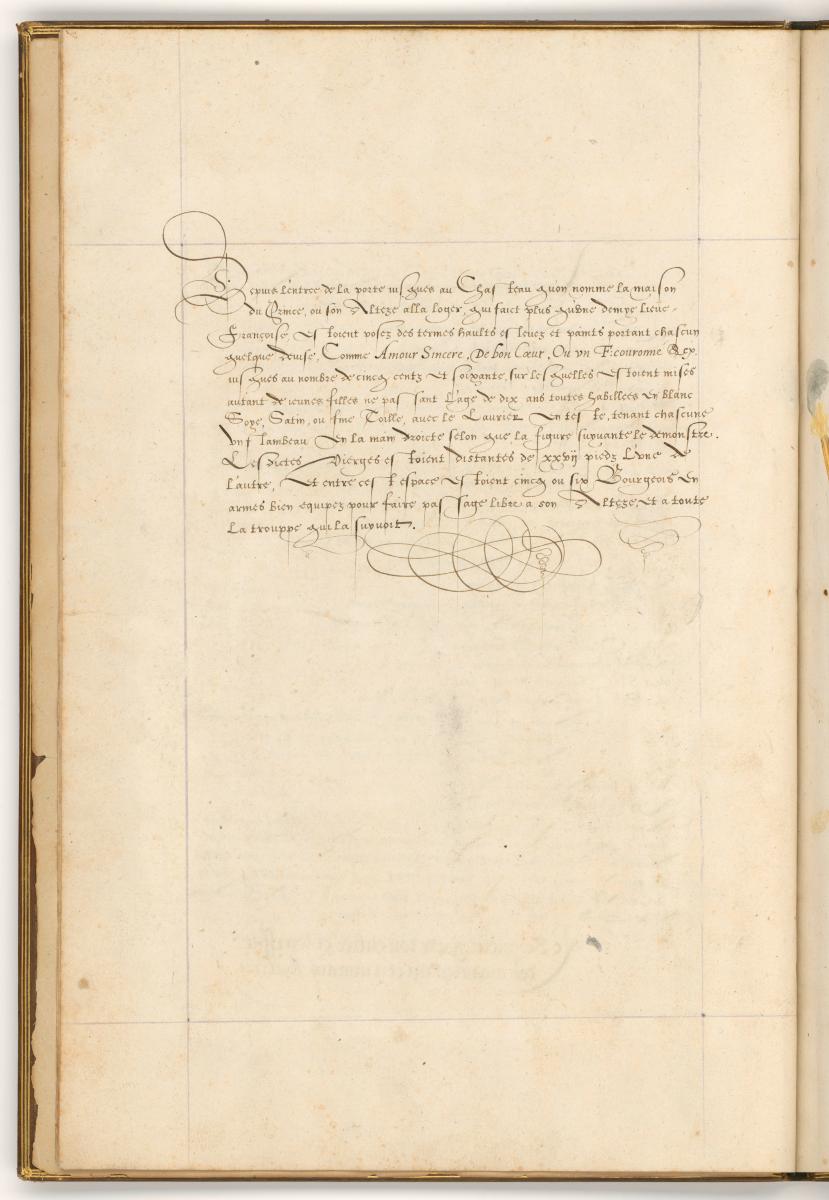 Depuis Lentree de la porte iusques au Chasteau quon nomme la maison
du Prince, ou son Alteze alla loger, qui faict plus qu'vne demye lieue
Françoise, estoient posez des termes haults esleuez et paints portant chascun
quelque deuise, Comme Amour Sincere, De bon Cœur, Ou vn F: couronné &ex.
iusques au nombre de cincq centz et soixante, sur lesquelles estoient mises
autant de ieunes filles ne passant L'age de dix ans toutes habillees en blanc
Soye, Satin, ou fine Toille, avec le Laurier en teste, tenant chascune
vn flambeau en la main droicte selon que la figure suyuante le demonstre.
Lesdictes Vierges estoient distantes de xxvij piedz L'vne de
L'autre, et entre cest espace estoient cincq ou six Bourgeois en
armes bien equipez pour faire passage libre a son Alteze, et a toute
La trouppe qui la suyuoit.